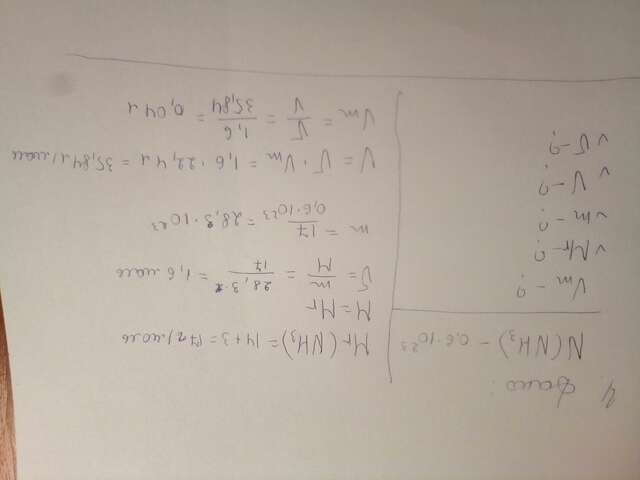 4. Дано:
N(NH₃) - 0,6·10²³
Vm - ?
Mr - ?
m - ?
V - ?
ν - ?
Mr(NH₃) = 14+3 = 17 г/моль
M = Mr
ν = m/M = 28,3/17 = 1,6 моль
m = 17/0,6·10²³ = 28,3·10²³
V = ν·Vm = 1,6·22,4 л = 35,84 л/моль
Vm = ν/V = 1,6/35,84 = 0,04 л